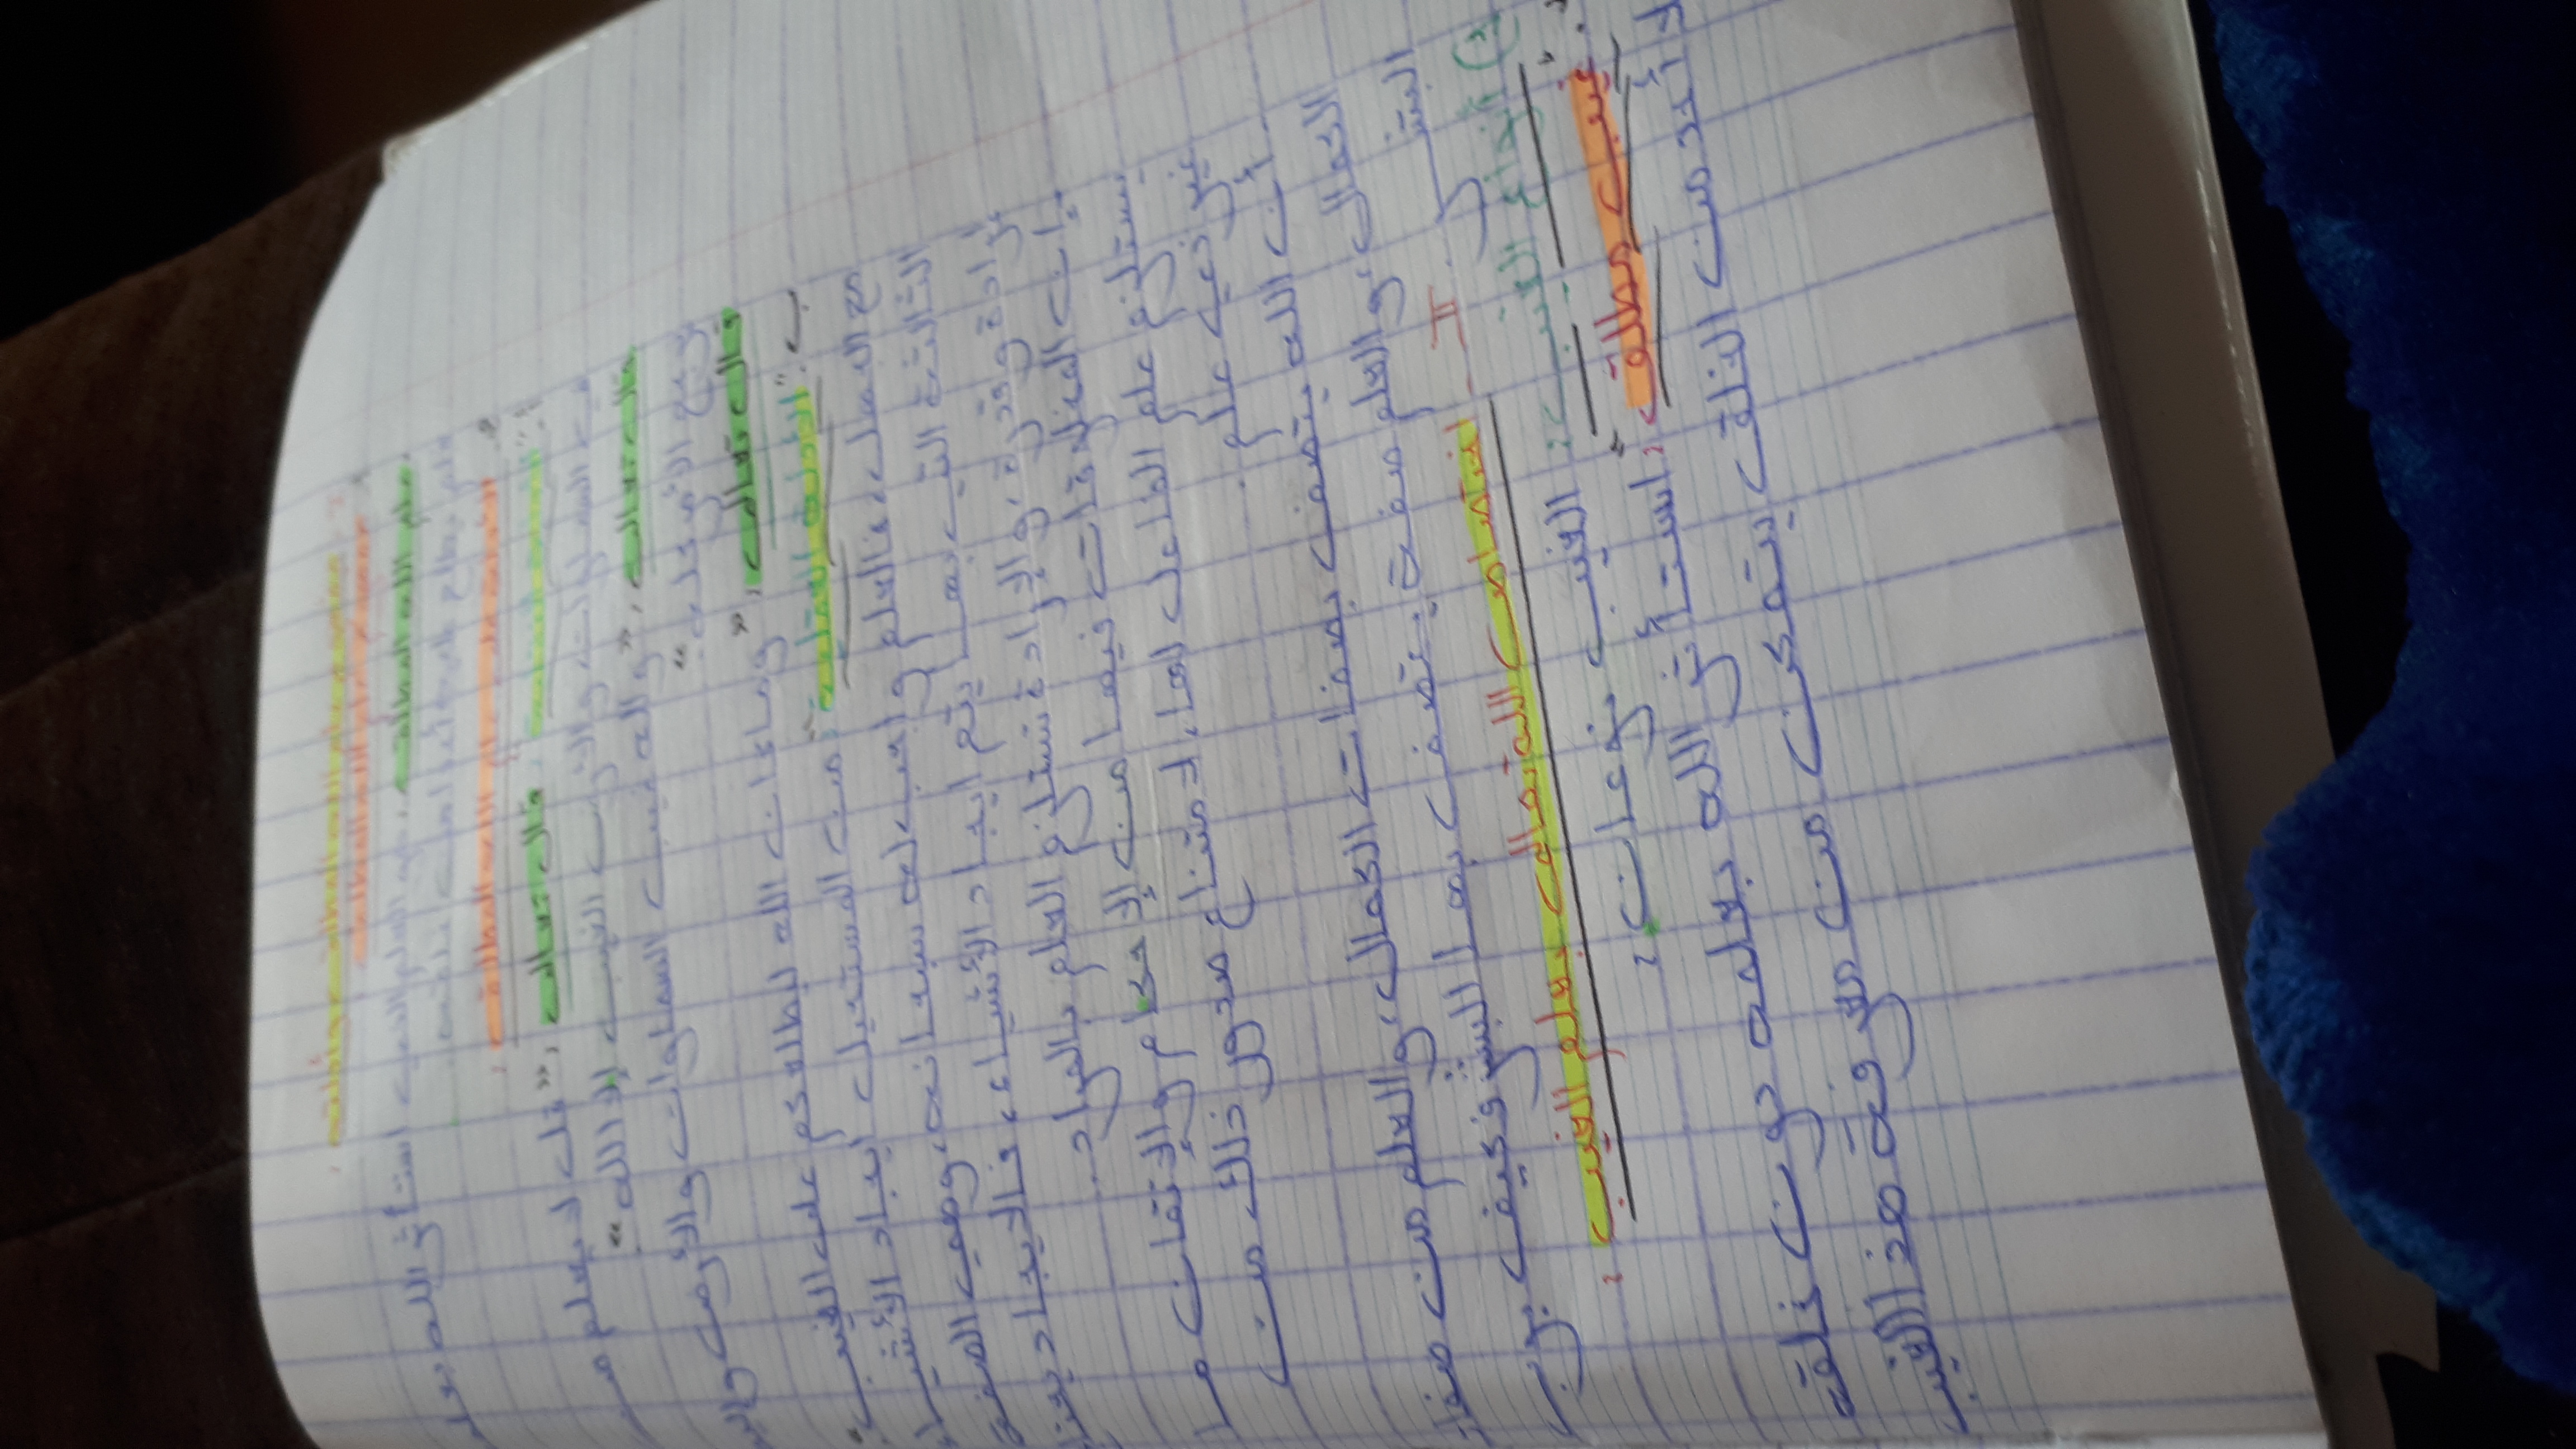 مفهوم علم الله المطلق وأدلته :
مفهوم علم الله المطلق
علم الله المطلق : هو العلم الذي استأثر الله بعلمه
فلم يطلع عليه أحدا من خلقه
2. الأدلة على علم الله المطلق :
أ. "الأدلة النقلية : قال تعالى : "قل لا يعلم من
في السماوات والأرض الغيب إلا الله"
قال تعالى : "ولله غيب السماوات والأرض وإليه
يرجع الأمر كله"
قال تعالى : "وما كان الله ليطلعكم على الغيب"
ب. "الأدلة العقلية" : من المستحيل ايجاد الأشياء
مع الجهل، فالعلم واجب له سبحانه، وهي الصفة
الثالثة التي بها يتم ايجاد الأشياء، فالايجاد
إرادة وقدرة، والإرادة تستلزم العلم بالمراد.
- إن المخلوقات فيها من الإحكام والإتقان ما
يستلزم علم الفاعل لها، لامتناع صدور ذلك من
غير ذي علم.
- أن الله يتصف بصفات الكمال، والعلم من صفات
الكمال، والعلم صفة يتصف بها البشر فكيف برب
البشر
II - اختصاص الله تعالى بعلم الغيب :
1) أنواع الغيب : الغيب نوعان :
"غيب مطلق" : استأثر الله بعلمه دون خلقه
لا أحد من الخلق يتمكن من معرفة هذا الغيب